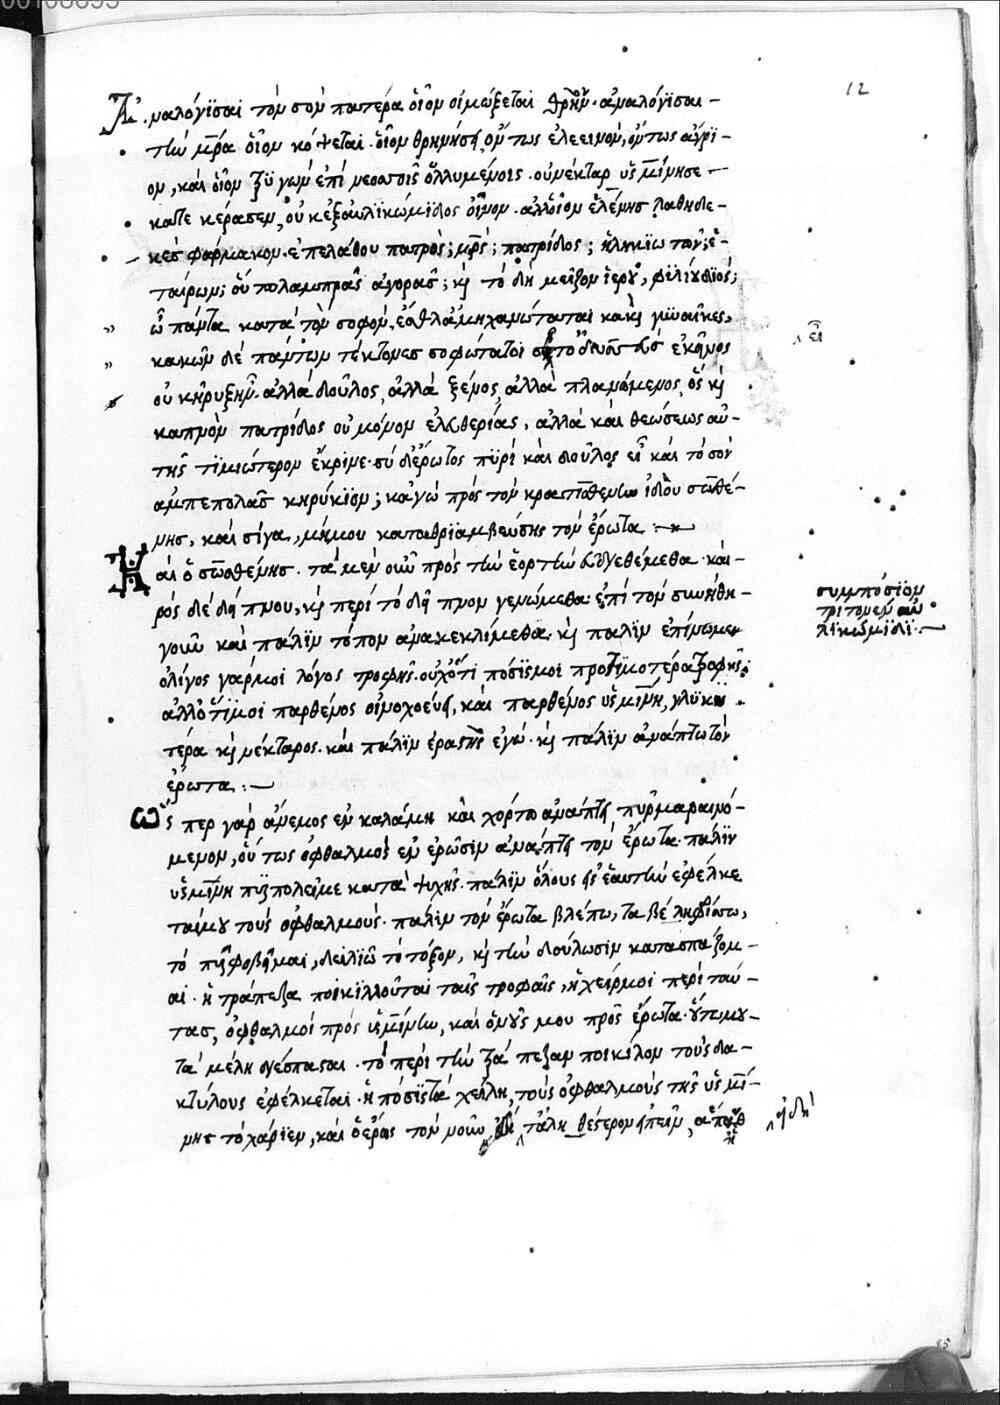 12
Ἀναλόγϊσαι τὸν σὸν πατέρα οἷον οἰμώξεται θρῆνον· ἀναλόγισαι
τὴν μρα οἷον κόψεται· οἷον θρηνήσει οὕτως ἐλεεινὸν, οὕτως ἄγρι-
ον, καὶ οἷον ζυγων ἐπὶ νεοσσοῖς ὀλλυμένοις· οὐ νέκταρ ὑσμίνη σε
κατεκέρασεν, οὐκ ἐξ αὐλικώμιδος οἶνον· ἀλλ' οἷον ἑλένης λαθηδε-
κὲς φάρμακον· ἐπελάθου πατρὸς; μρς; πατρίδος; ἡλικιωτῶν; ἑ-
ταίρων; οὗ πολαμπρᾶς ἀγορᾶς; κὶ τὸ δὴ μεῖζον ἱεροῦ, φιλίου διὸς;
ὦ πάντα κατὰ τὸν σοφὸν, ἐσθλὰ μηχανώταται κακὴ γυναῖκες,
κακῶν δὲ πάντων τέκτονες σοφώταται ὀδυσσεὺς ἐκεῖνος
οὐ κῆρυξ ἦν· ἀλλὰ δοῦλος, ἀλλὰ ξένος, ἀλλὰ πλανώμενος, ὃς κὶ
καπνὸν πατρίδος οὐ μόνον ἐλευθερίας, ἀλλὰ καὶ θεώσεως αὐ-
τῆς τϊμιώτερον ἔκρινε· σὺ δ' ἔρωτος πυρὶ καὶ δοῦλος εἶ καὶ τὸ σὸν
ἀμπεπολας κηρύκϊον; κἀγὼ πρὸς τὸν κρατισθένην ἰδοὺ σωσθέ-
νης, καὶ σίγα, μή μου καταθριαμβεύσῃς τὸν ἔρωτα :—
Καὶ ὁ σωσθένης· τὰ μὲν οὖν πρὸς τὴν ἑορτὴν εὐηγεθέμεθα· και-
ρὸς δὲ δείπνου, κὶ περὶ τὸ δεῖπνον γενώμεθα· ἐπὶ τὸν συνήθη
γοῦν καὶ πάλιν τόπον ἀνακεκλίμεθα· κὶ πάλιν ἐπίνομεν
ὀλίγος γάρ μοι λόγος τροφῆς· οὐχ ὅτι πόσϊς μοι προτιμοτέρα τροφῆς·
ἀλλ' ὅτι μοι παρθένος οἰνοχοεύει, καὶ παρθένος ὑσμίνη, γλυκυ-
τέρα κὶ νέκταρος· καὶ πάλιν ἐραστὴς ἐγὼ· κὶ πάλιν ἀνάπτω τὸν
ἔρωτα :—
Ὥσπερ γὰρ ἄνεμος ἐν καλάμῃ καὶ χόρτῳ ἀνάπτει πῦρ μαραινό-
μενον, οὕτως ὀφθαλμοὶ ἐν ἐρῶσιν ἀνάπτει τὸν ἔρωτα· πάλιν
ὑσμίνη πυρπολεῖ με κατὰ ψυχῆς· πάλιν ὅλους εἰς ἑαυτὴν ἐφέλκε
ταί μου τοὺς ὀφθαλμούς· πάλιν τὸν ἔρωτα βλέπω, τὰ βέλη φρίττω,
τὸ πῦρ φοβοῦμαι, δειλιῶ τὸ τόξον, κὶ τὴν δούλωσιν κατασπάζομ-
αι· ἡ τράπεζα ποικίλλουται ταῖς τροφαῖς, ἡ χείρ μοι περὶ ταύ-
τας, ὀφθαλμοὶ πρὸς ὑσμίνην, καὶ ὁ νοῦς μου πρὸς ἔρωτα· οὕτω μου
τὰ μέλη διέσπασται· τὸ περὶ τὴν τράπεζαν ποικίλον τοὺς δα-
κτύλους ἐφέλκεται· ἡ πόσις τὰ χείλη, τοὺς ὀφθαλμοὺς τῆς ὑσμί-
νης τὸ χάριεν, καὶ ὁ ἔρως τὸν νοῦν, τἀληθέστερον εἰπεῖν,
εἰ
συμπόσϊον
τρίτον ἐν αὐ
λϊκώμϊδι :—
ἤδη